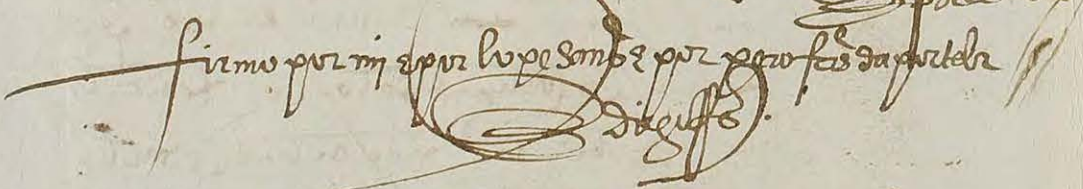 firmo por mi e por lope sanss e por pero frrs da portela
diº giffs